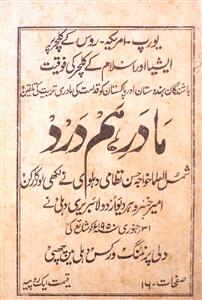 یورپ۔ امریکہ۔ روس کے کلچر پر
ایشیا اور اسلام کے کلچر کی فوقیت
باشندگان ہندوستان اور پاکستان کو قدامت کی مادری تربیت کی تلقین
مادر ہمدرد
شمس العلما خواجہ حسن نظامی دہلوی نے لکھی اور کارکن
امیر خسرو ہر دیوار دو لائبریری دہلی نے
۳۱ جنوری ۱۹۵۰ء کو شائع کی
دلی پرنٹنگ ورکس دہلی میں چھپی
صفحات ۱۶۰
قیمت ایک روپیہ